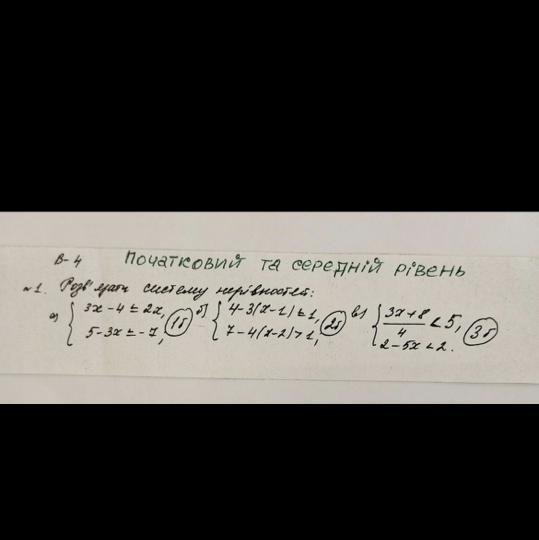 В-4 ПОЧАТКОВИЙ ТА СЕРЕДНІЙ РІВЕНЬ
№1. Розв'язати систему нерівностей:
а) { 3x-4 ≤ 2x, б) { 4-3(x-1) ≥ 1, в) { (3x+8)/4 < 5,
5-3x ≥ -7, (1б) 7-4(x-2) > 1, (2б) 2-5x < 2. (3б)